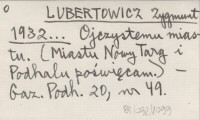 LUBERTOWICZ Zygmunt
1932... Ojczystemu mias-
tu. (Miastu Nowy Targ i
Podhalu poświęcam.) —
Gaz. Podh. 20, nr 49.